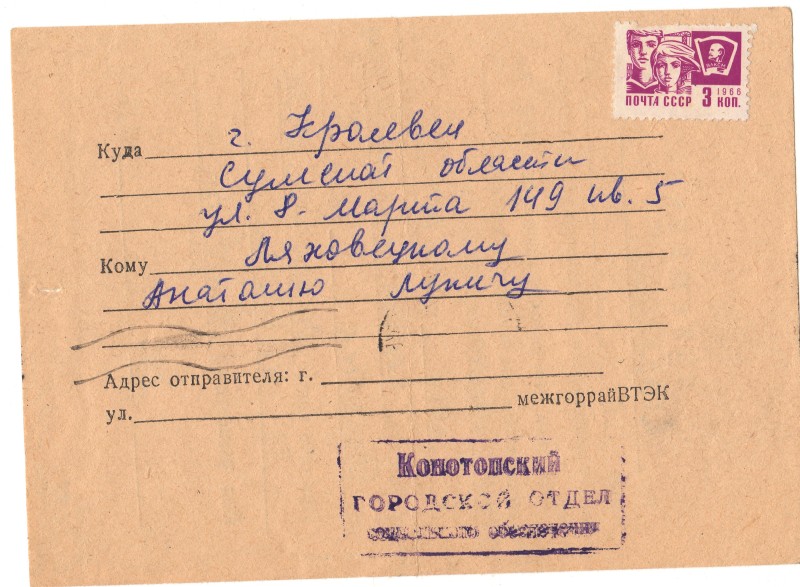 ПОЧТА СССР 3 КОП. 1966
Куда г. Кролевец
Сумская области
ул. 8-Марта 149 кв. 5
Кому Ляховецкому
Анатолию Лукичу
Адрес отправителя: г.
ул. межгоррайВТЭК
Конотопский
ГОРОДСКОЙ ОТДЕЛ
социального обеспечения